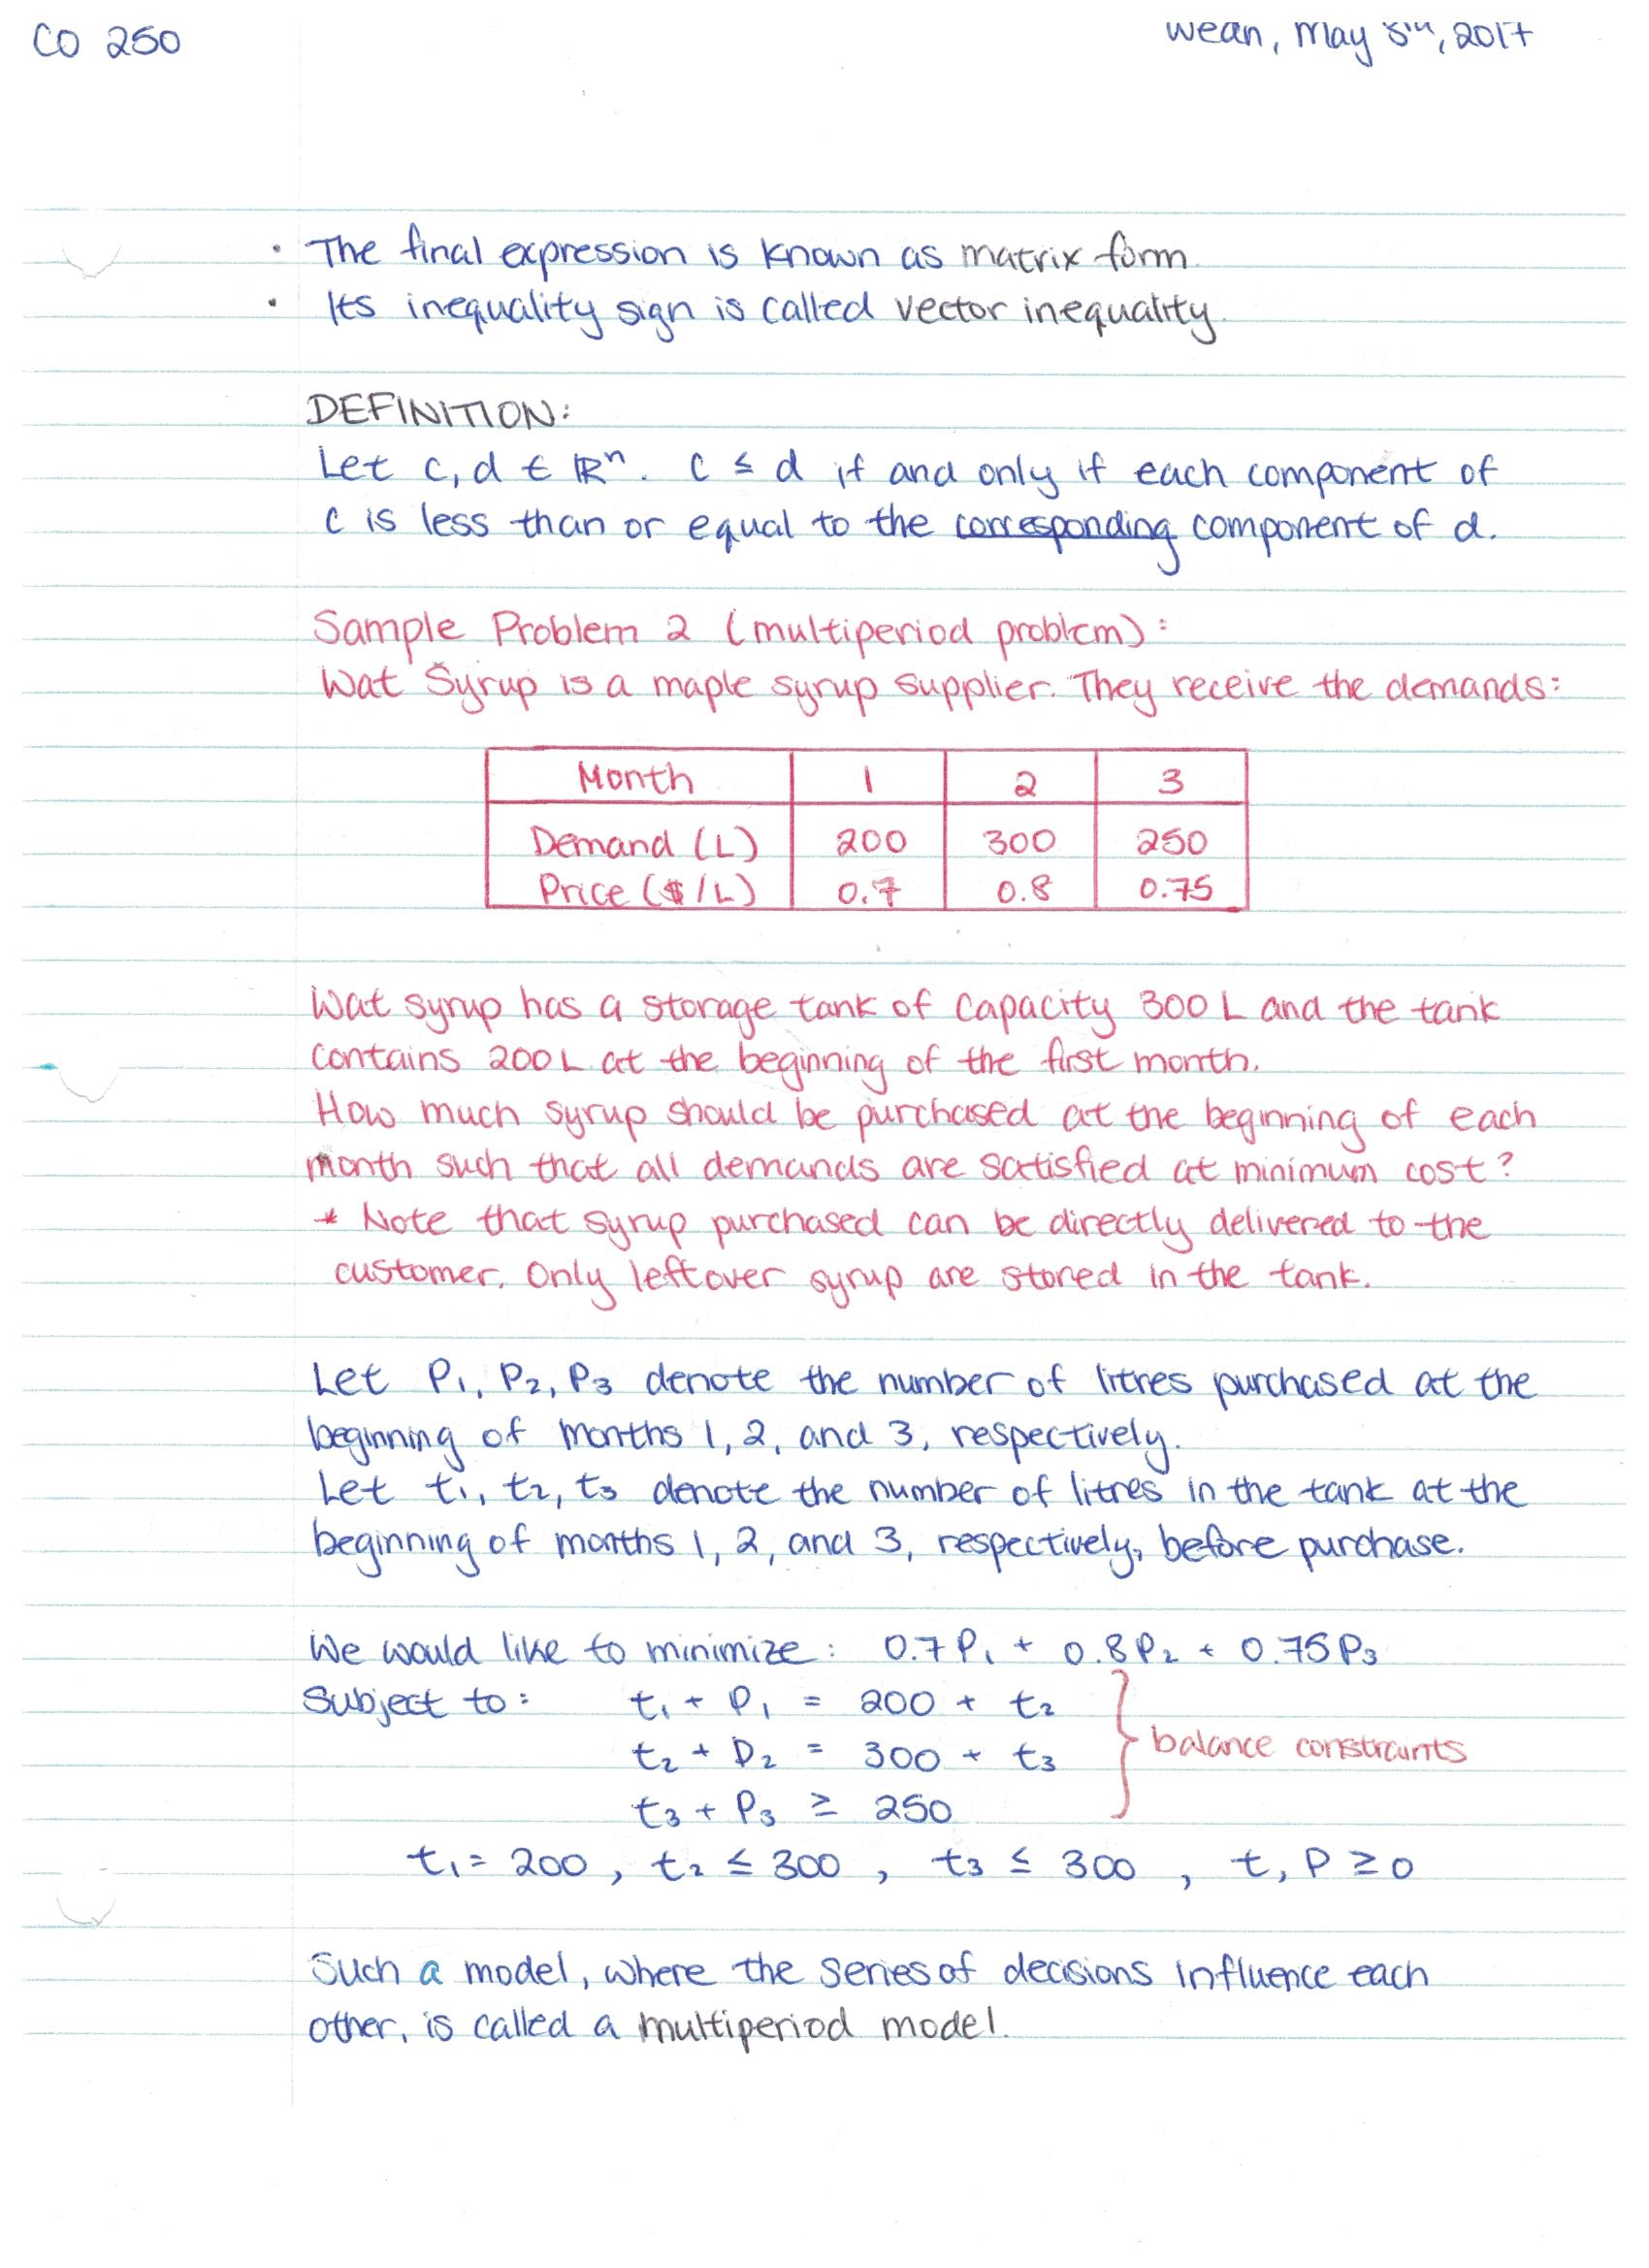 CO 250
May 2017
• The final expression is known as matrix form.
• Its inequality sign is called vector inequality.
DEFINITION:
Let c, d ∈ ℝⁿ. c ≤ d if and only if each component of
c is less than or equal to the corresponding component of d.
Sample Problem 2 (multiperiod problem):
Wat Syrup is a maple syrup supplier. They receive the demands:
Month 1 2 3
Demand (L) 200 300 250
Price ($/L) 0.7 0.8 0.75
Wat syrup has a storage tank of capacity 300 L and the tank
contains 200 L at the beginning of the first month.
How much syrup should be purchased at the beginning of each
month such that all demands are satisfied at minimum cost?
* Note that syrup purchased can be directly delivered to the
customer. Only leftover syrup are stored in the tank.
Let P₁, P₂, P₃ denote the number of litres purchased at the
beginning of months 1, 2, and 3, respectively.
Let t₁, t₂, t₃ denote the number of litres in the tank at the
beginning of months 1, 2, and 3, respectively, before purchase.
We would like to minimize: 0.7P₁ + 0.8P₂ + 0.75P₃
Subject to: t₁ + P₁ = 200 + t₂
t₂ + P₂ = 300 + t₃ } balance constraints
t₃ + P₃ ≥ 250
t₁ = 200, t₂ ≤ 300, t₃ ≤ 300, t, P ≥ 0
Such a model, where the series of decisions influence each
other, is called a multiperiod model.